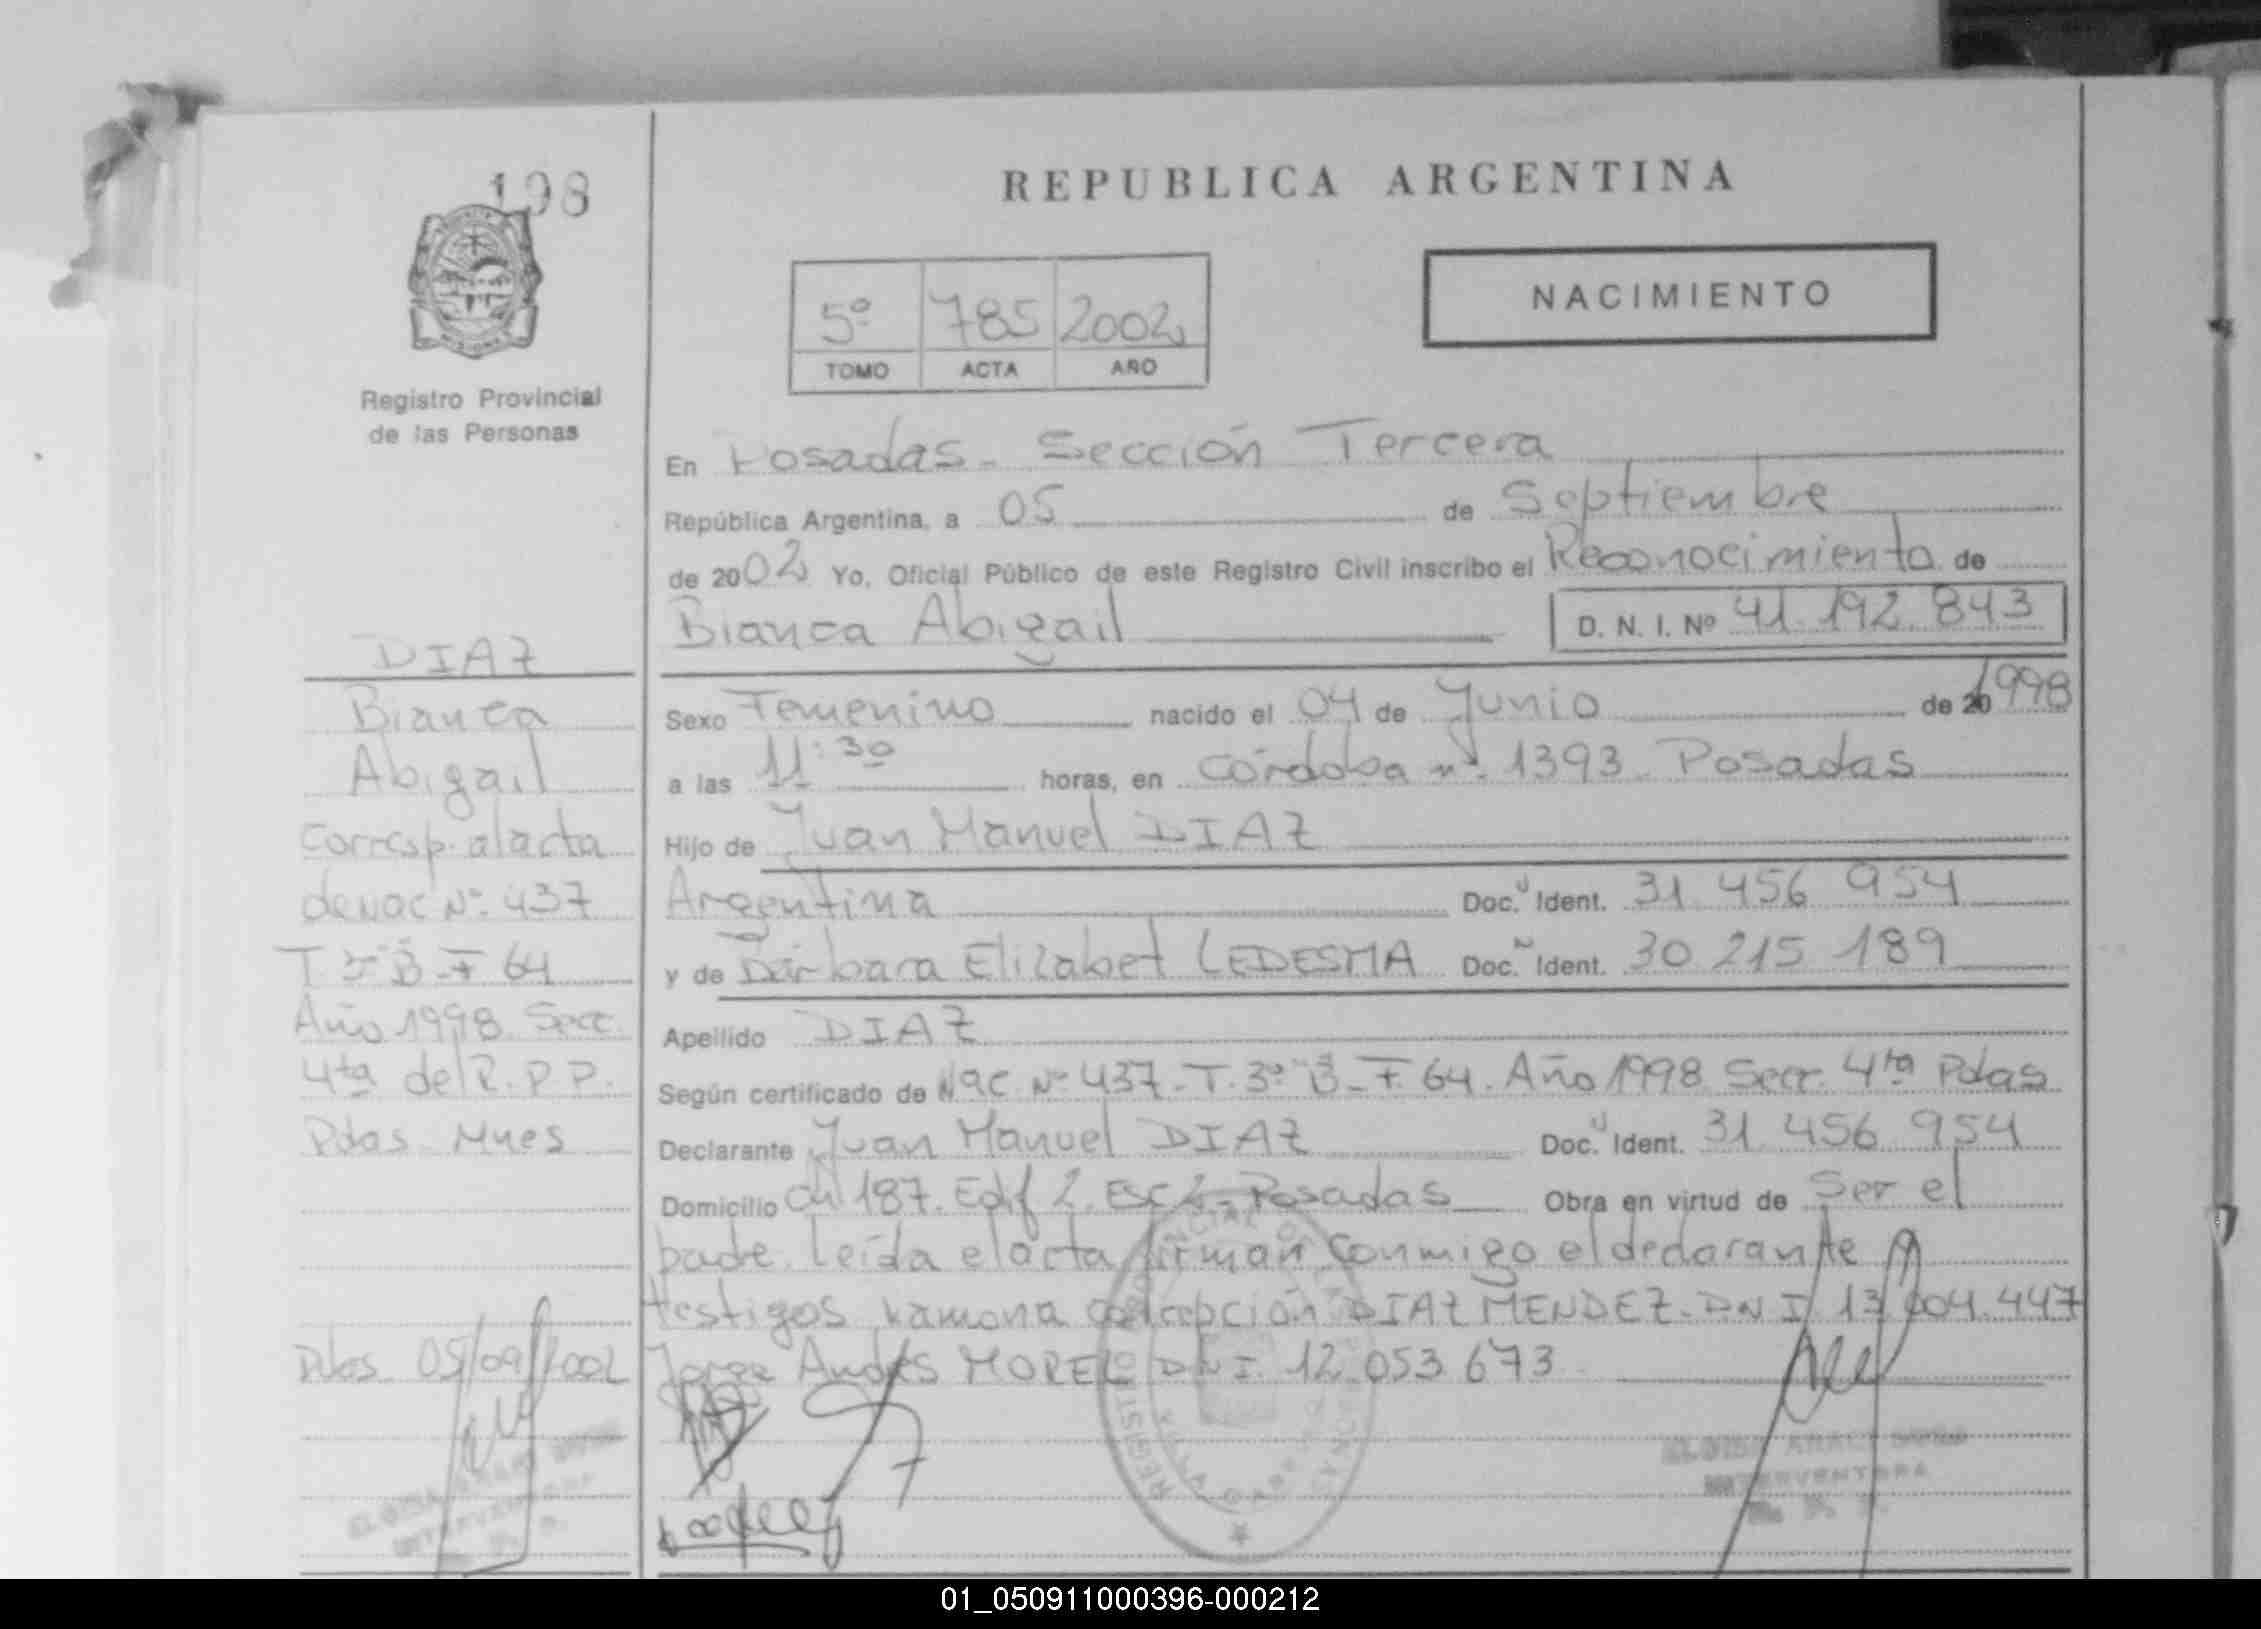 198
REPUBLICA ARGENTINA
NACIMIENTO
5º 785 2002
TOMO ACTA AÑO
Registro Provincial
de las Personas
En Posadas - Sección Tercera
República Argentina, a 05 de Septiembre
de 2002 Yo, Oficial Público de este Registro Civil inscribo el Reconocimiento de
Bianca Abigail D. N. I. Nº 41.192.843
Sexo Femenino nacido el 04 de Junio de 20 1998
a las 11:30 horas, en Córdoba nº 1393 Posadas
Hijo de Juan Manuel DIAZ
Argentina Doc. Ident. 31.456.954
y de Bárbara Elizabet LEDESMA Doc. Ident. 30.215.189
Apellido DIAZ
Según certificado de Nac Nº 437 - T. 3º "B" - F 64. Año 1998 Secc. 4ta Pdas
Declarante Juan Manuel DIAZ Doc. Ident. 31.456.954
Domicilio Ch 187. Edif 2. Esc 2 - Posadas Obra en virtud de Ser el
padre. Leída el acta firman conmigo el declarante
testigos Ramona Concepción DIAZ MENDEZ - DNI 13.004.447
Jorge Andrés MOREL DNI 12.053.673
DIAZ
Bianca
Abigail
Corresp. al acta
de nac Nº 437
T 3º B - F 64
Año 1998 Secc.
4ta del R.P.P.
Pdas Mnes
Pdas 05/09/2002
REGISTRO
INTERVENTORA
ELOISA
INTERVENTORA
01_050911000396-000212